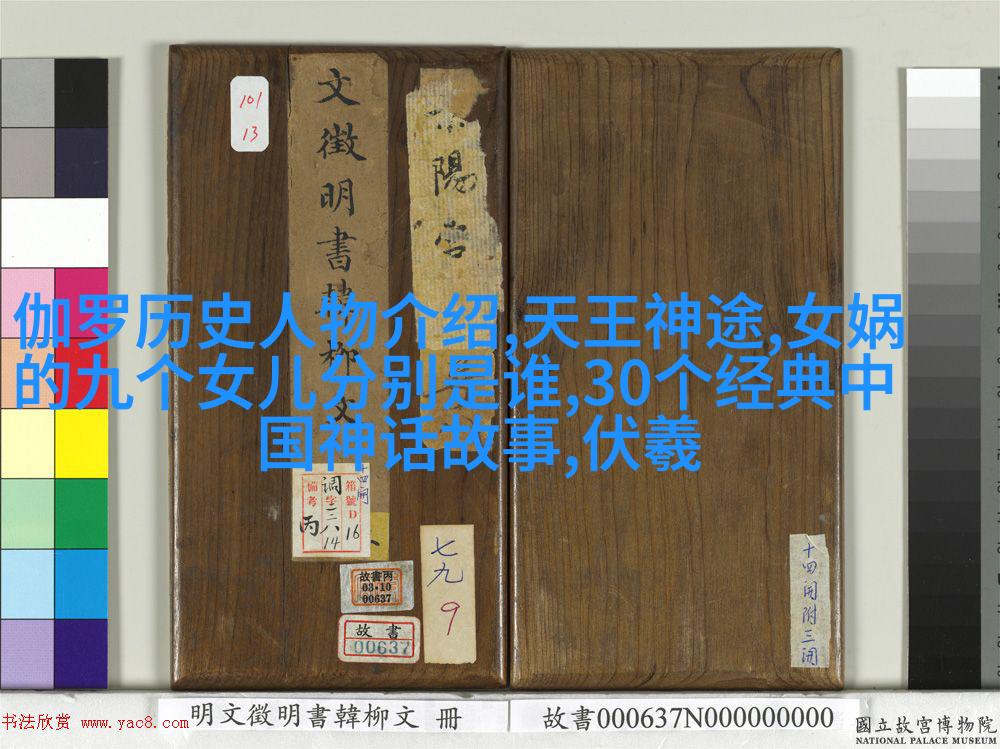 伽罗历史人物介绍,天王神途,女娲
的九个女儿分别是谁,30个经典中
国神话故事,伏羲
101
13
文徵明書韓柳文
陽宮
箱號D
16
調字三八
14
備考
丙
十四開
故書丙
03·10
00637
故書
00637
七九
9
十四開附三開
明文徵明書韓柳文 冊
故書000637N000000000
國立故宮博物院
NATIONAL PALACE MUSEUM
书法欣赏 www.yac8.com